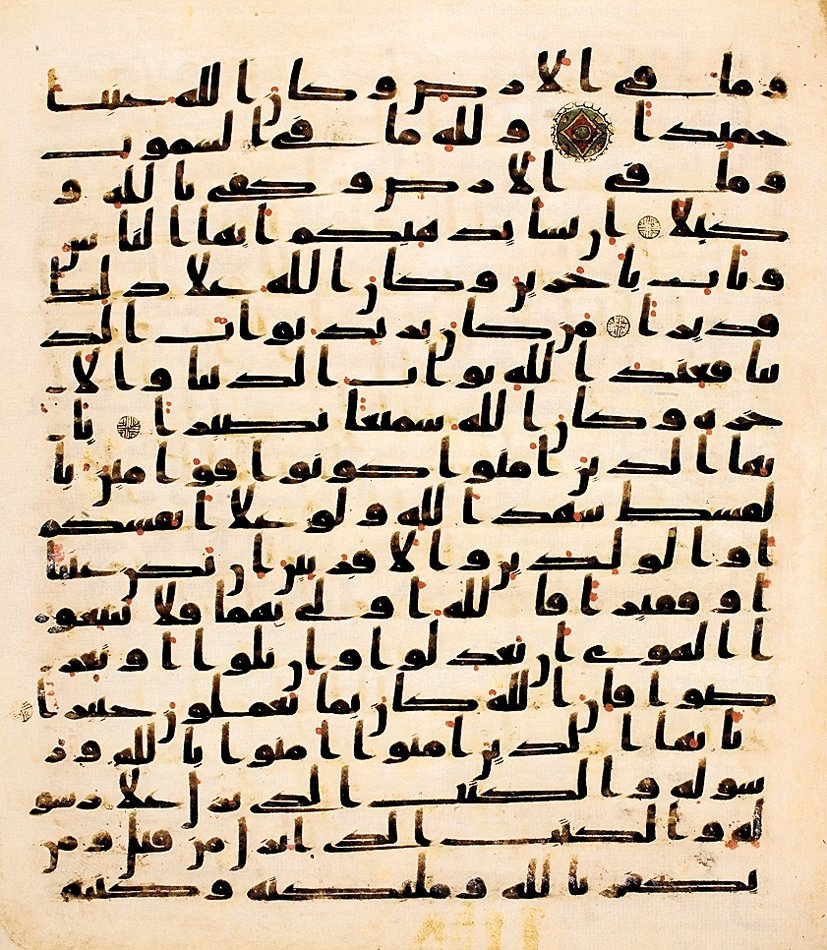 وما في الارض وكان الله غنيا
حميدا ولله ما في السموت
وما في الارض وكفى بالله و
كيلا ان يشا يذهبكم ايها الناس
ويات باخرين وكان الله علا ذلك
قديرا من كان يريد ثواب الد
نيا فعند الله ثواب الدنيا والا
خره وكان الله سميعا بصيرا يا
يها الذين امنوا كونوا قوامين با
لقسط شهدا لله ولو علا انفسكم
او الولدين والاقربين ان يكن غنيا
او فقيرا فالله اولى بهما فلا تتبعو
ا الهوى ان تعدلوا وان تلوا او تعر
ضوا فان الله كان بما تعملون خبيرا
يايها الذين امنوا امنوا بالله ور
سوله والكتب الذي نزل علا رسو
له والكتب الذي انزل من قبل ومن
يكفر بالله وملئكته وكتبه